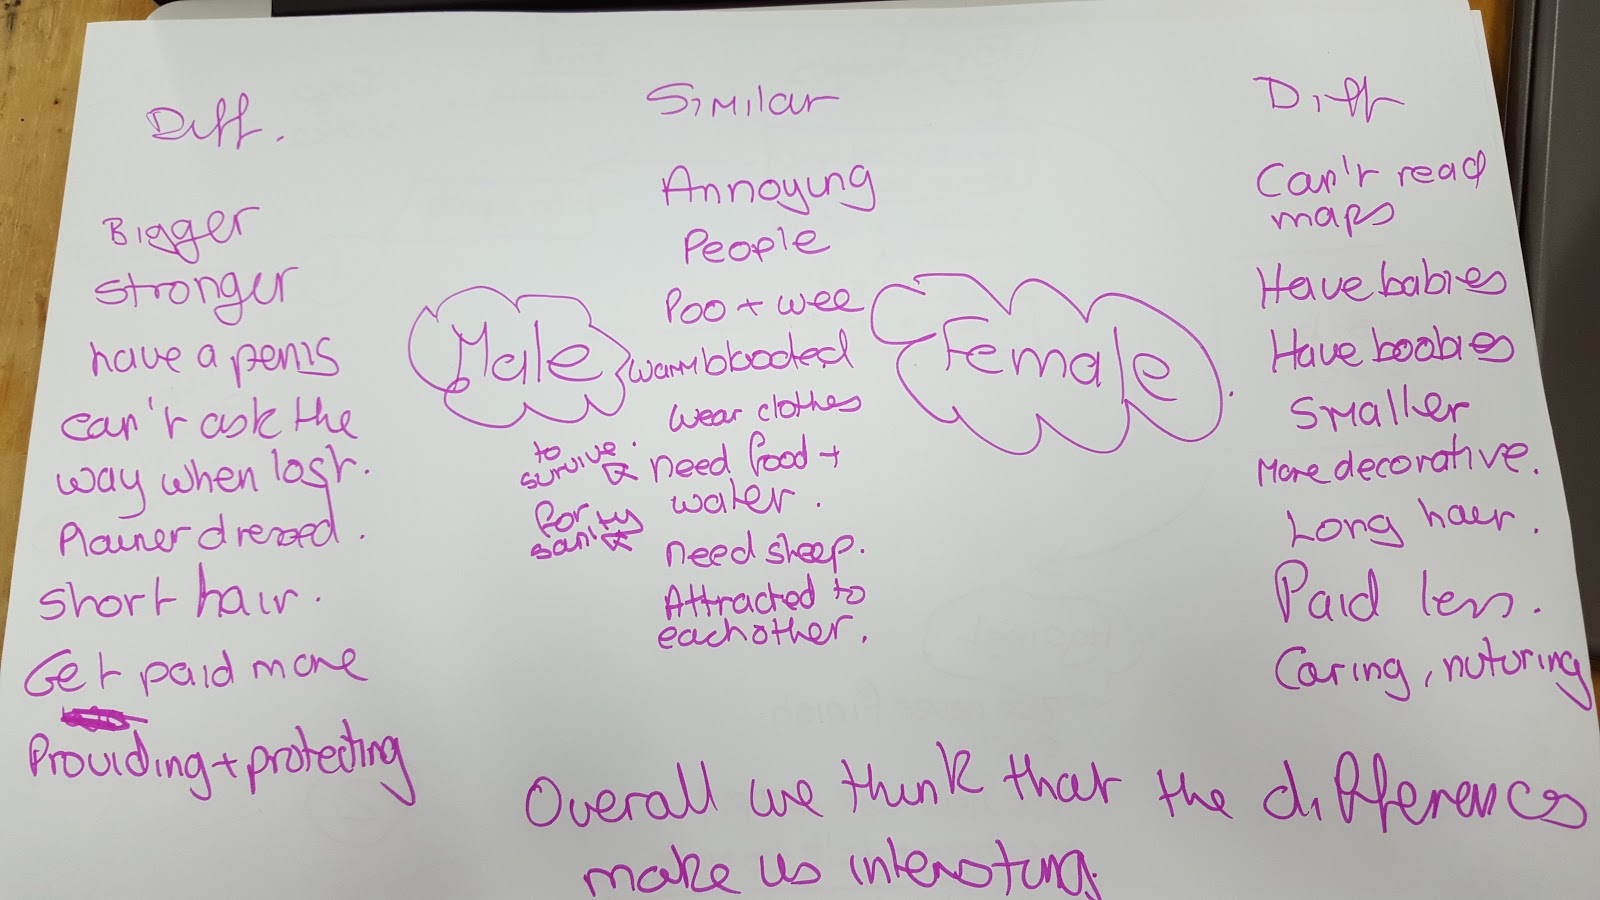 Diff.
Bigger
Stronger
have a penis
can't ask the
way when lost.
Plainer dressed.
Short hair.
Get paid more
Providing + protecting
Male
Similar
Annoying
People
Poo + wee
warmblooded
wear clothes
need food +
water.
to
survive.
need sleep.
for
sanity
Attracted to
each other.
Female
Diff
Can't read
maps
Have babies
Have boobies
Smaller
More decorative.
Long hair.
Paid less.
Caring, nuturing
Overall we think that the differences
make us interesting.